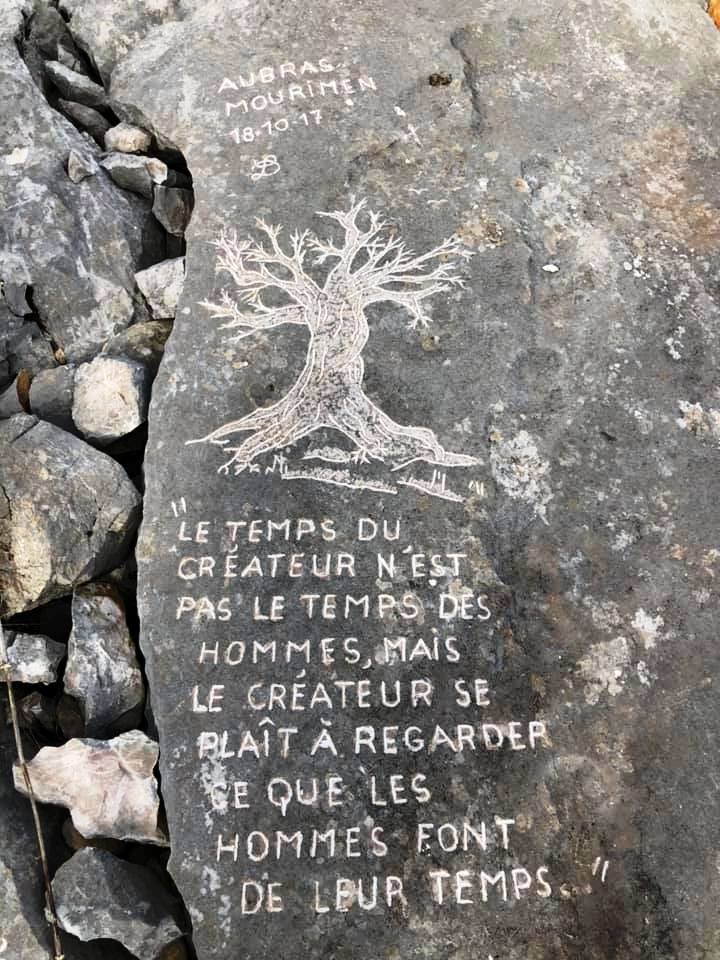 AUBRAS
MOURIMEN
18.10.17
"LE TEMPS DU
CRÉATEUR N'EST
PAS LE TEMPS DES
HOMMES, MAIS
LE CRÉATEUR SE
PLAÎT À REGARDER
CE QUE LES
HOMMES FONT
DE LEUR TEMPS..."